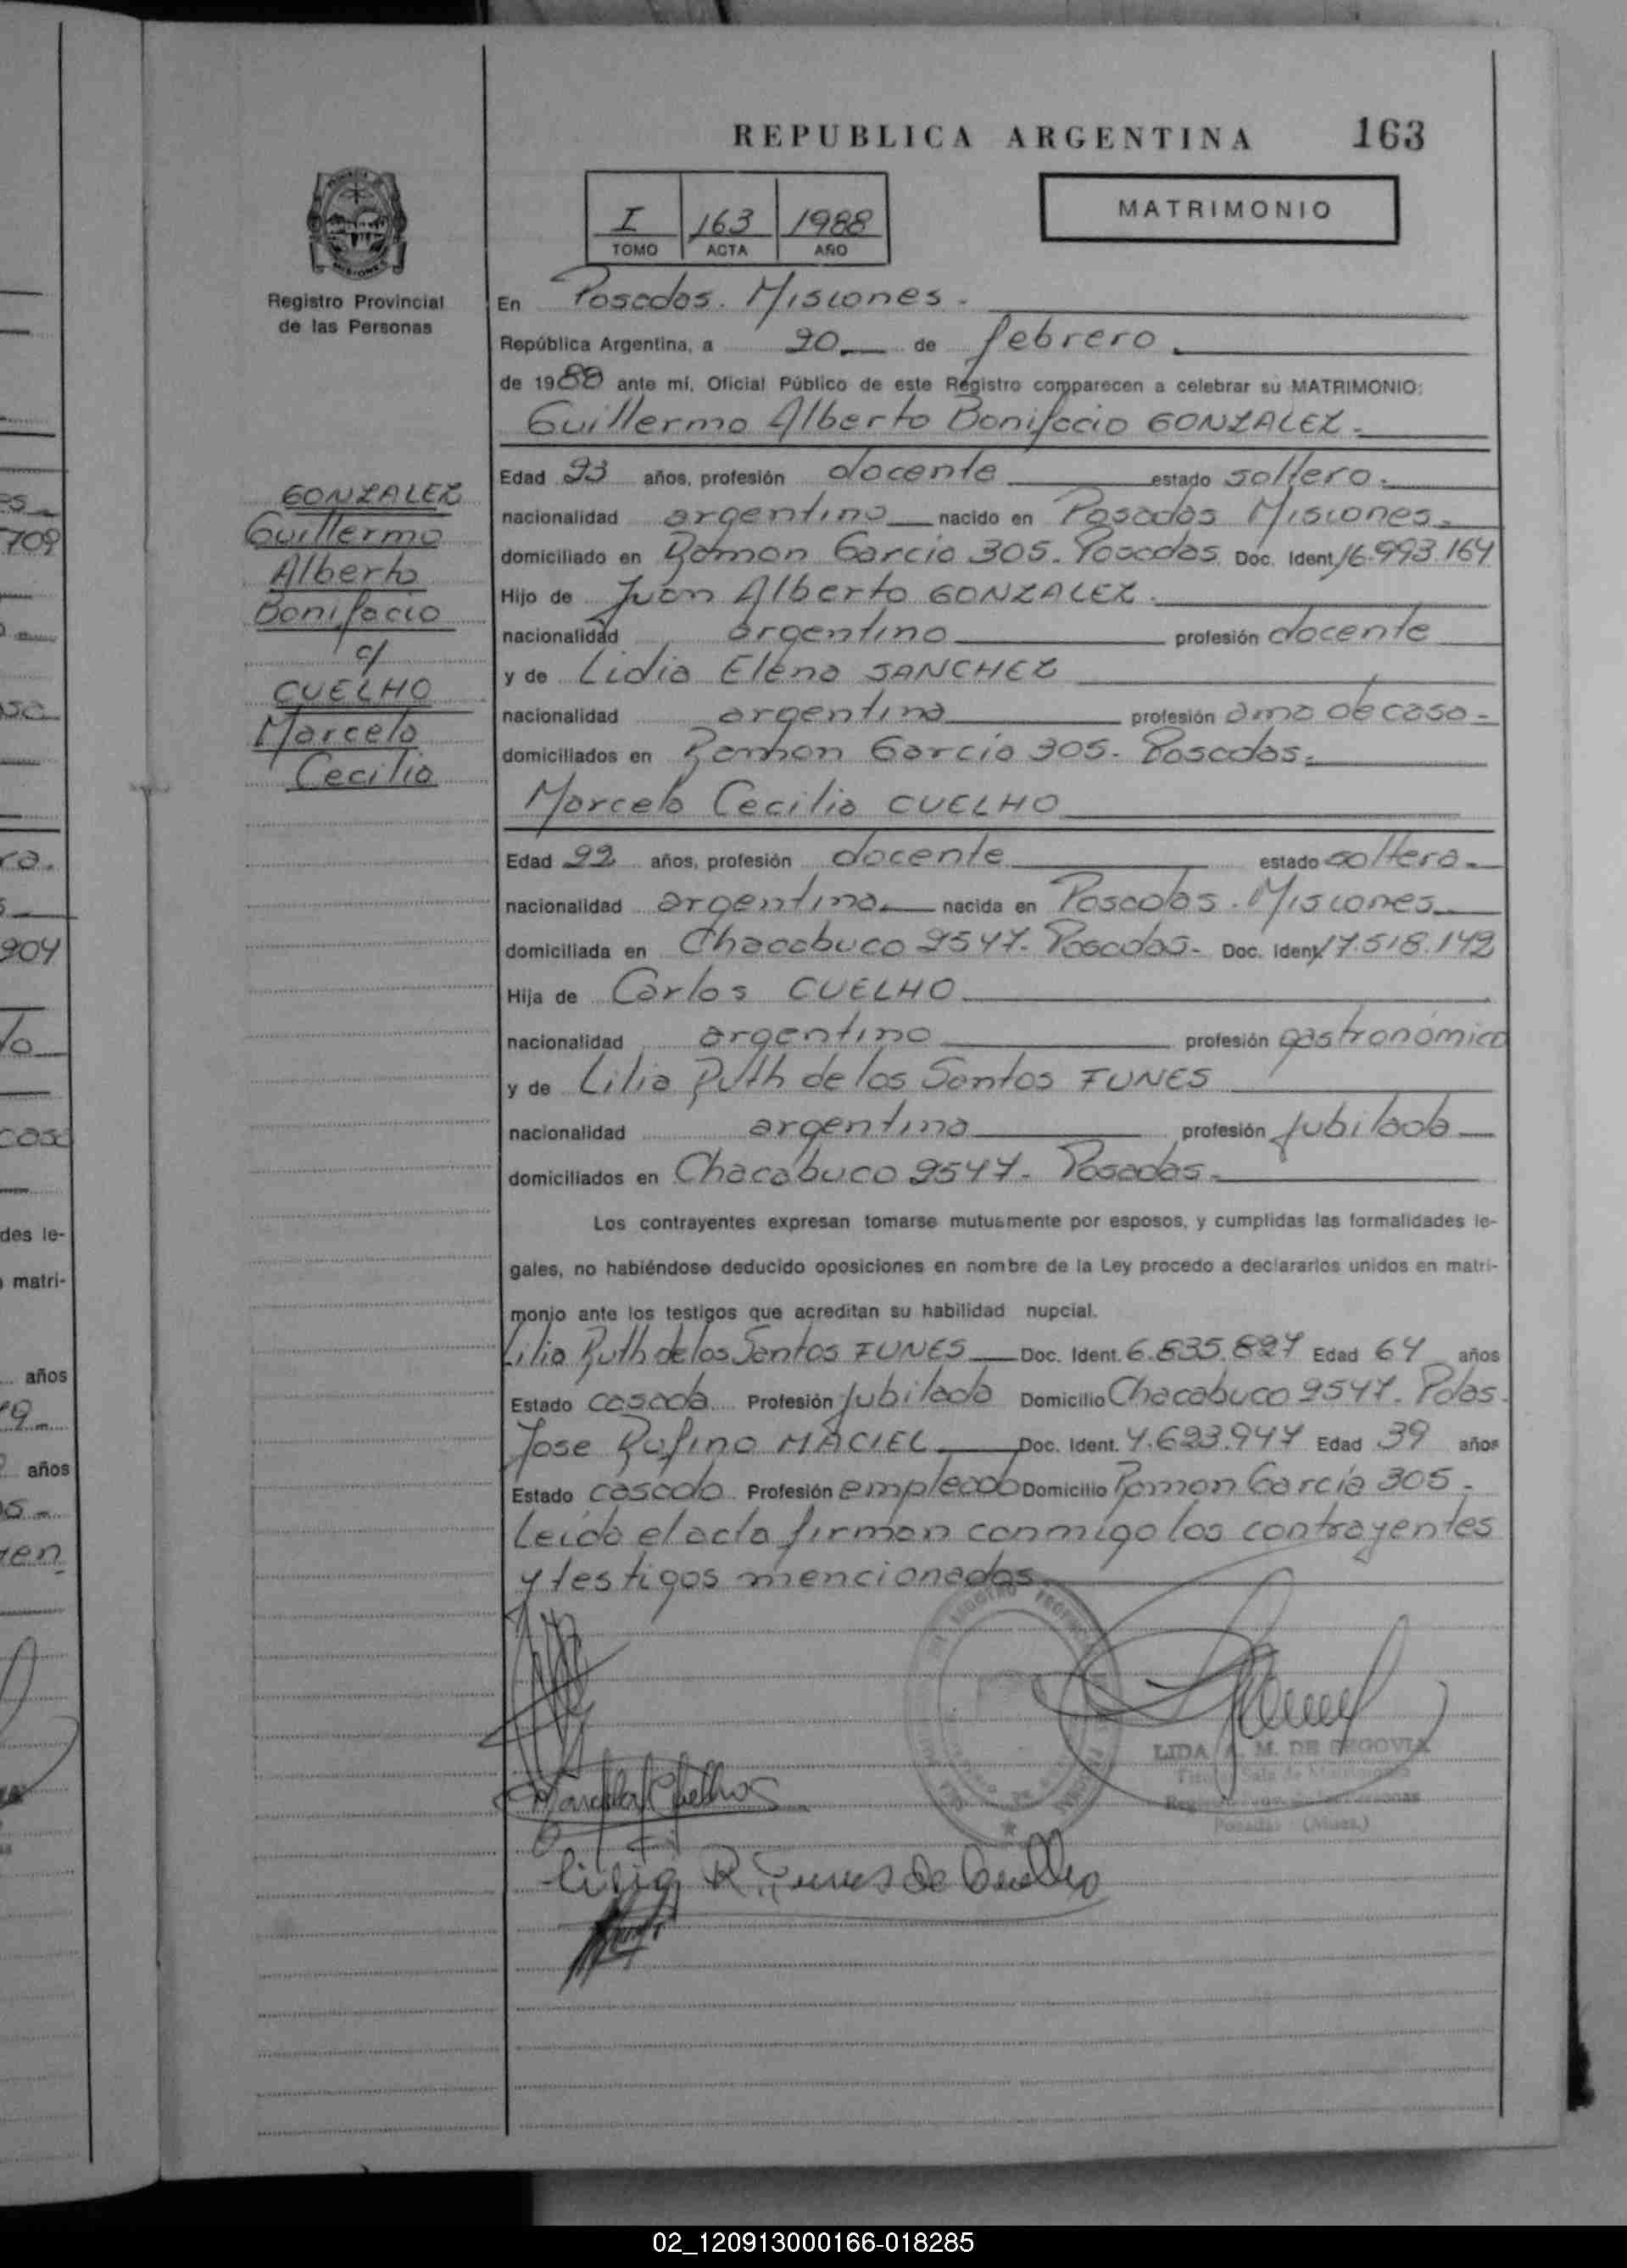 REPUBLICA ARGENTINA 163
I 163 1988
TOMO ACTA AÑO
MATRIMONIO
Registro Provincial
de las Personas
En Posadas. Misiones.
República Argentina, a 20 de febrero
de 1988 ante mí, Oficial Público de este Registro comparecen a celebrar su MATRIMONIO:
Guillermo Alberto Bonifacio GONZALEZ.
Edad 23 años, profesión docente estado soltero.
nacionalidad argentino nacido en Posadas Misiones.
domiciliado en Ramon Garcia 305. Posadas. Doc. Ident. 16.993.164
Hijo de Juan Alberto GONZALEZ.
nacionalidad argentino profesión docente
y de Lidia Elena SANCHEZ
nacionalidad argentina profesión ama de casa.
domiciliados en Ramon Garcia 305. Posadas.
GONZALEZ
Guillermo
Alberto
Bonifacio
c/
CUELHO
Marcela
Cecilia
Marcela Cecilia CUELHO
Edad 22 años, profesión docente estado soltera.
nacionalidad argentina nacida en Posadas. Misiones
domiciliada en Chacabuco 2547. Posadas. Doc. Ident. 17.518.142
Hija de Carlos CUELHO
nacionalidad argentino profesión gastronómico
y de Lilia Ruth de los Santos FUNES
nacionalidad argentina profesión jubilada
domiciliados en Chacabuco 2547. Posadas.
Los contrayentes expresan tomarse mutuamente por esposos, y cumplidas las formalidades le-
gales, no habiéndose deducido oposiciones en nombre de la Ley procedo a declararlos unidos en matri-
monio ante los testigos que acreditan su habilidad nupcial.
Lilia Ruth de los Santos FUNES Doc. Ident. 6.835.827 Edad 64 años
Estado casada Profesión jubilada Domicilio Chacabuco 2547. Pdas.
Jose Rufino MACIEL Doc. Ident. 7.623.947 Edad 39 años
Estado casado Profesión empleado Domicilio Ramon García 305.
Leída el acta firman conmigo los contrayentes
y testigos mencionados.
LIDA A. M. DE SEGOVIA
Titular Sala de Matrimonio
Posadas (Mnes.)
Lilia R. Funes de Cuelho
02_120913000166-018285